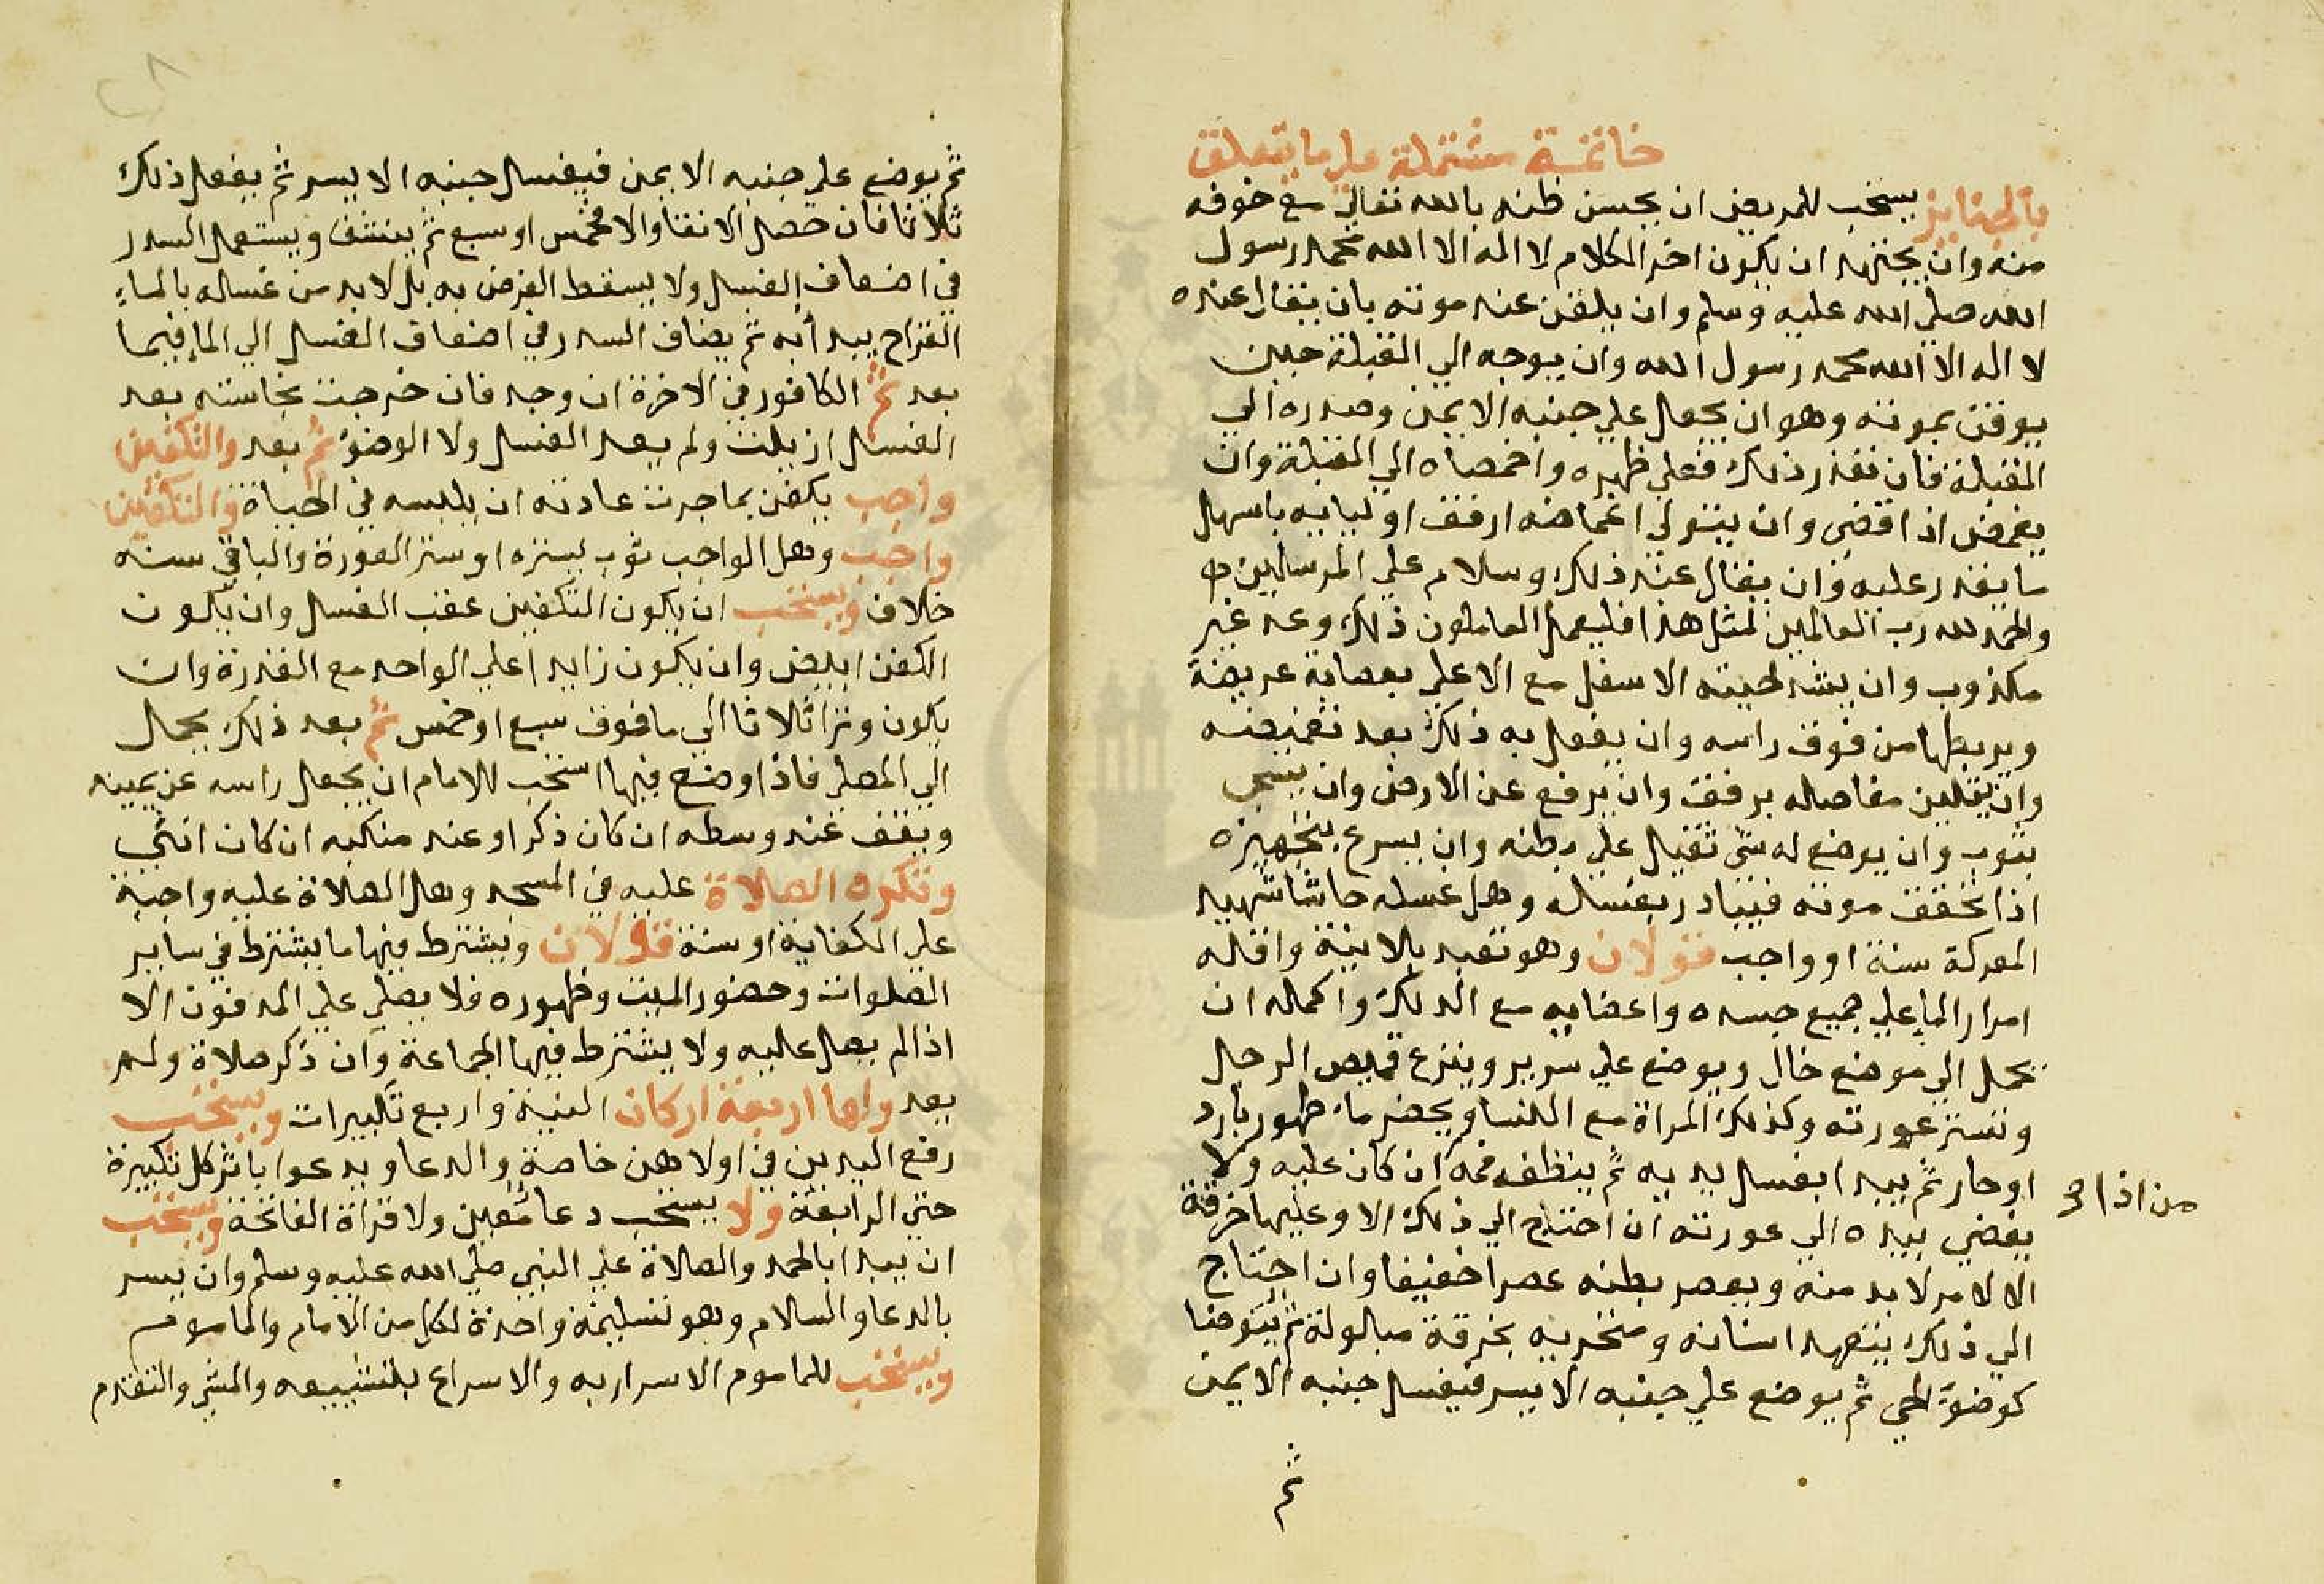 خاتمة مشتملة علي ما يتعلق
بالجنايز يستحب للمريض ان يحسن ظنه بالله تعالي مع خوفه
منه وان يجتهد ان يكون اخر الكلام لا اله الا الله محمد رسول
الله صلي الله عليه وسلم وان يلقن عند موته بان يقال عنده
لا اله الا الله محمد رسول الله وان يوجه الي القبلة حين
يوقن بموته وهو ان يجعل علي جنبه الايمن وصدره الي
القبلة فان تعذر ذلك فعلي ظهره واخمصاه الي القبلة وان
يغمض اذا قضي وان يتولي اغماضه ارفق اوليايه باسهل
ما يقدر عليه وان يقال عند ذلك وسلام علي المرسلين
والحمد لله رب العالمين لمثل هذا فليعمل العاملون ذلك وعد غير
مكذوب وان يشد لحيته الاسفل مع الاعلي بعصابة عريضة
ويربطها من فوق راسه وان يفعل به ذلك بعد تغميضه
وان يلين مفاصله برفق وان يرفع عن الارض وان يسجي
بثوب وان يوضع له شي ثقيل علي بطنه وان يسرع بتجهيزه
اذا تحقق موته فيبادر بغسله وهل غسله حاشا شهيد
المعركة سنة او واجب قولان وهو تعبد بلا نية واقله
امرار الما علي جميع جسده واعضايه مع الدلك واكماله ان
يحمل الي موضع خال ويوضع علي سرير وينزع قميص الرجل
وتستر عورته وكذلك المراة مع النسا ويحضر ماء طهور بارد
او حار ثم يبدا بغسل يديه ثم ينظف فمه ان كان عليه ولا
يفضي بيده الي عورته ان احتاج الي ذلك الا وعليها خرقة
من اذا
الا لامر لا بد منه ويعصر بطنه عصرا خفيفا وان احتاج
الي ذلك يتعهد اسنانه ومنخريه بخرقة مبلولة ثم يتوضا
كوضوء الحي ثم يوضع علي جنبه الايسر فيغسل جنبه الايمن
ثم
ثم يوضع علي جنبه الايمن فيغسل جنبه الايسر ثم يفعل ذلك
ثلاثا فان حصل الانقا والا فخمس او سبع ثم ينشف ويستعمل السدر
في اضعاف الغسل ولا يسقط الفرض به بل لا بد من غسله بالماء
القراح يبدأ به ثم يضاف السدر في اضعاف الغسل الي الماء فيما
بعد ثم الكافور في الاخرة ان وجد فان خرجت نجاسته بعد
الغسل ازيلت ولم يعد الغسل ولا الوضوء ثم بعد والتكفين
واجب يكفن بما جرت عادته ان يلبسه في الحياة والتكفين
واجب وهل الواجب ثوب يستره او ستر العورة والباقي سنه
خلاف ويستحب ان يكون التكفين عقب الغسل وان يكون
الكفن ابيض وان يكون زايدا علي الواحد مع القدرة وان
يكون وترا ثلاثا الي ما فوق سبع او خمس ثم بعد ذلك يحمل
الي المصلي فاذا وضع فيها استحب للامام ان يجعل راسه عن يمينه
ويقف عند وسطه ان كان ذكرا وعند منكبه ان كان انثي
وتكره الصلاة عليه في المسجد وهل الصلاة عليه واجبة
علي الكفاية او سنة قولان ويشترط فيها ما يشترط في ساير
الصلوات وحضور الميت وظهوره فلا يصلي علي المدفون الا
اذا لم يصل عليه ولا يشترط فيها الجماعة وان ذكر صلاة ولم
يعد ولها اربعة اركان النية واربع تكبيرات ويستحب
رفع اليدين في اولاهن خاصة والدعا ويدعوا باثر كل تكبيرة
حتي الرابعة ولا يستحب دعا معين ولا قراة الفاتحة ويستحب
ان يبدا بالحمد والصلاة علي النبي صلي الله عليه وسلم وان يسر
بالدعا والسلام وهو تسليمة واحدة لكل من الامام والماموم
ويستحب للماموم الاسرار به والاسراع بتشييعه والمشي والتقدم